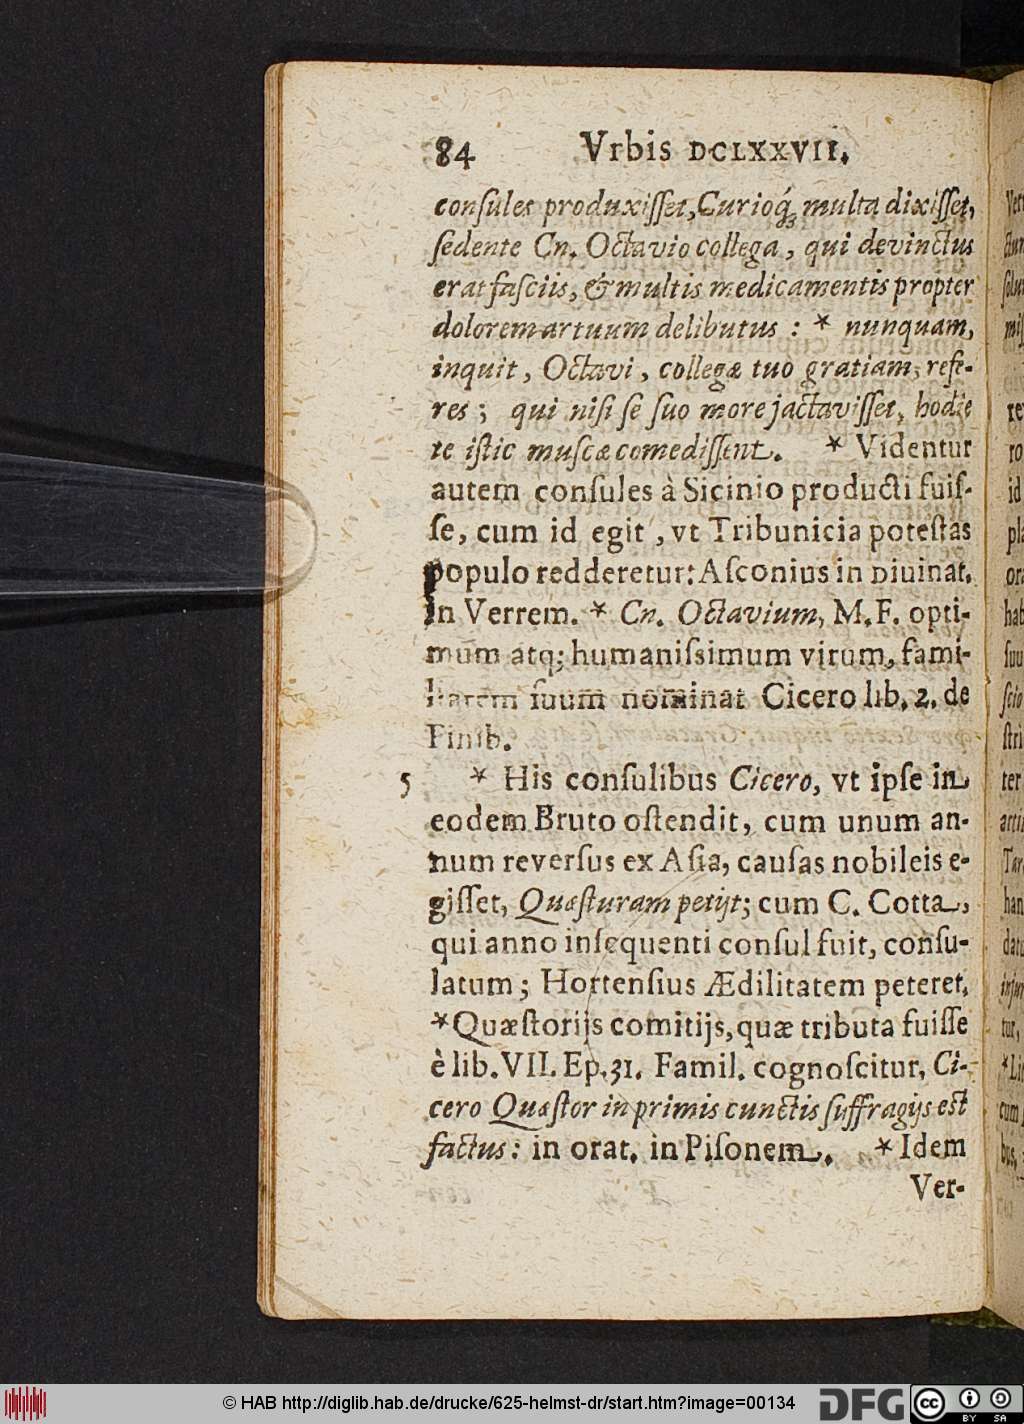 84 Vrbis DCLXXVII.
conſules produxiſſet, Curioq́; multa dixiſſet,
ſedente Cn. Octavio collega, qui devinctus
erat faſciis, & multis medicamentis propter
dolorem artuum delibutus : * nunquam,
inquit, Octavi, collegæ tuo gratiam, refe-
res ; qui niſi ſe ſuo more jactaviſſet, hodie
te iſtic muſcæ comediſſent. * Videntur
autem conſules à Sicinio producti fuiſ-
ſe, cum id egit, vt Tribunicia poteſtas
populo redderetur: Aſconius in Diuinat.
in Verrem. * Cn. Octavium, M. F. opti-
mum atq; humaniſsimum virum, fami-
liarem ſuum nominat Cicero lib. 2. de
Finib.
5 * His conſulibus Cicero, vt ipſe in
eodem Bruto oſtendit, cum unum an-
num reverſus ex Aſia, cauſas nobileis e-
giſſet, Quæſturam petijt; cum C. Cotta,
qui anno inſequenti conſul fuit, conſu-
latum ; Hortenſius Ædilitatem peteret.
* Quæſtorijs comitijs, quæ tributa fuiſſe
è lib. VII. Ep. 31. Famil. cognoſcitur, Ci-
cero Quæſtor in primis cunctis ſuffragijs eſt
factus: in orat. in Piſonem. * Idem
Ver-
© HAB http://diglib.hab.de/drucke/625-helmst-dr/start.htm?image=00134
DFG
cc
BY SA